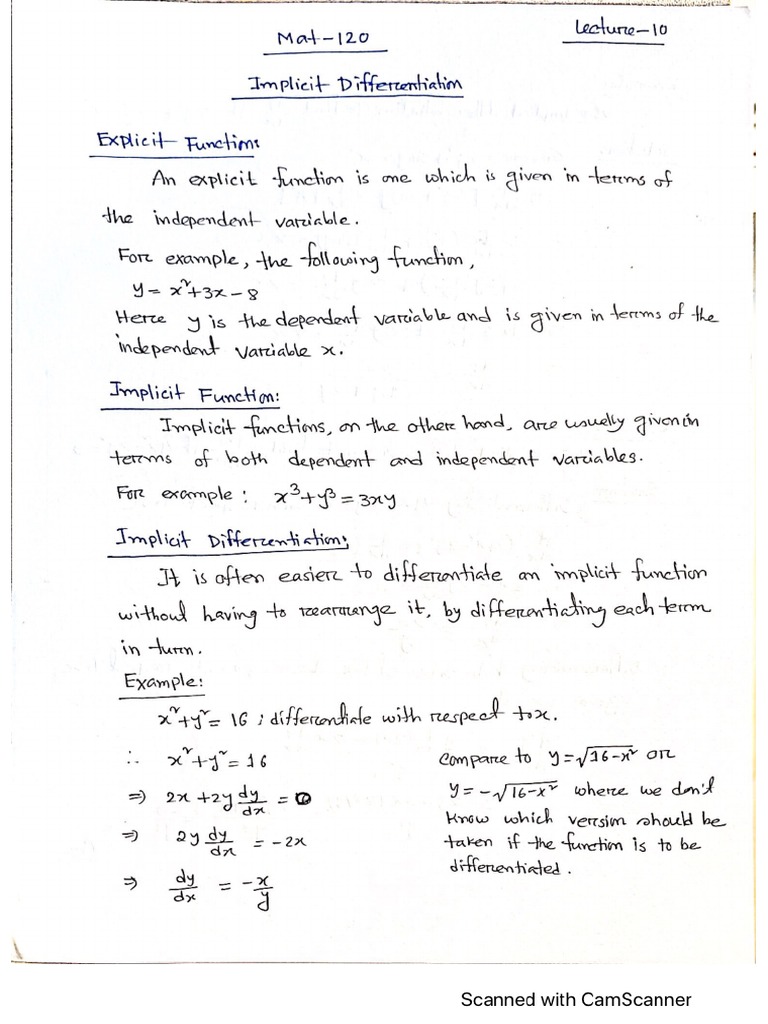 Mat-120
Lecture-10
Implicit Differentiation
Explicit Function:
An explicit function is one which is given in terms of
the independent variable.
For example, the following function,
y = x²+3x-8
Here y is the dependent variable and is given in terms of the
independent variable x.
Implicit Function:
Implicit functions, on the other hand, are usually given in
terms of both dependent and independent variables.
For example : x³+y³ = 3xy
Implicit Differentiation:
It is often easier to differentiate an implicit function
without having to rearrange it, by differentiating each term
in turn.
Example:
x²+y² = 16 ; differentiate with respect to x.
∴ x²+y² = 16
⇒ 2x+2y dy/dx = 0
⇒ 2y dy/dx = -2x
⇒ dy/dx = -x/y
Compare to y=√16-x² or
y = -√16-x² where we don't
know which version should be
taken if the function is to be
differentiated.
Scanned with CamScanner